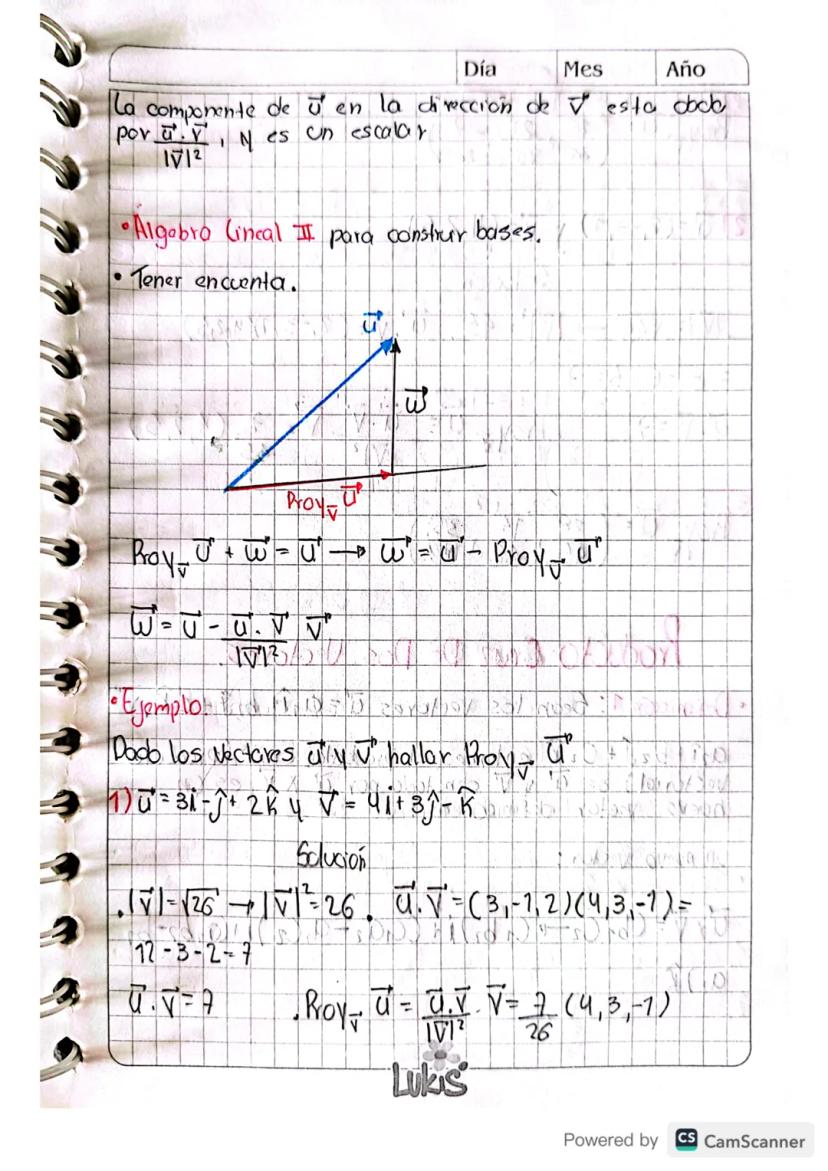 Día Mes Año
La componente de u⃗ en la dirección de v⃗ esta dada
por u⃗ . v⃗ / |v⃗|², y es un escalar
• Algebra Lineal II para construir bases.
• Tener encuenta.
u⃗
w⃗
Proy_v⃗ u⃗
Proy_v⃗ u⃗ + w⃗ = u⃗ → w⃗ = u⃗ - Proy_v⃗ u⃗
w⃗ = u⃗ - u⃗ . v⃗ / |v⃗|² v⃗
• Ejemplo:
Dado los vectores u⃗ y v⃗ hallar Proy_v⃗ u⃗
1) u⃗ = 3î - ĵ + 2k̂ y v⃗ = 4î + 3ĵ - k̂
Solución
. |v⃗| = √26 → |v⃗|² = 26 . u⃗ . v⃗ = (3, -1, 2)(4, 3, -1) =
12 - 3 - 2 = 7
u⃗ . v⃗ = 7 . Proy_v⃗ u⃗ = u⃗ . v⃗ / |v⃗|² . v⃗ = 7/26 (4, 3, -1)
Lukis
Powered by CS CamScanner